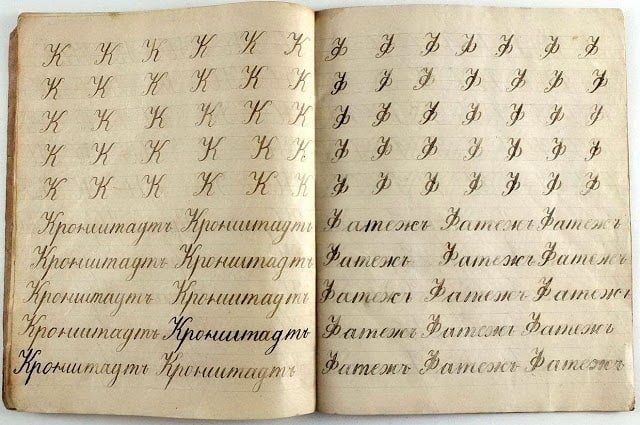 К К К К К К
К К К К К К
К К К К К К
К К К К К К
К К К К К К
Кронштадтъ Кронштадтъ
Кронштадтъ Кронштадтъ
Кронштадтъ Кронштадтъ
Кронштадтъ Кронштадтъ
Кронштадтъ Кронштадтъ
Ф Ф Ф Ф Ф Ф Ф
Ф Ф Ф Ф Ф Ф Ф
Ф Ф Ф Ф Ф Ф Ф
Ф Ф Ф Ф Ф Ф Ф
Ф Ф Ф Ф Ф Ф Ф
Фатежъ Фатежъ Фатежъ
Фатежъ Фатежъ Фатежъ
Фатежъ Фатежъ Фатежъ
Фатежъ Фатежъ Фатежъ
Фатежъ Фатежъ Фатежъ